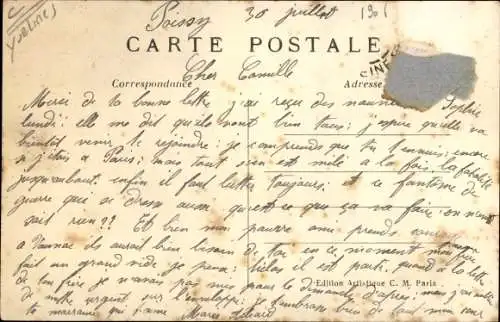 (Yvelines)
Poissy 30 juillet 190
CARTE POSTALE
Correspondance
Adresse
Cher Camille
Merci de ta bonne lettre j'ai reçue des nouvelles Sophie
lundi; elle me dit qu'ils vont bien tous; j'espère qu'elle va
bientôt venir te rejoindre; je comprends que tu t'ennuis; encore
si j'étais a Paris; mais tout est mêlé a la fois, la fatalité
jusqu'au bout. enfin il faut lutter toujours, et ce fantôme de
guerre que se dresse aussi, qu'est ce que ça va faire, on n'en
sait rien?? Et bien mon pauvre ami prends courage
a ils aurait bien besoin de toi en ce moment
fait un grand vide je pense; hélas il est parti, quand a la lettre
de ton frère je n'avais pas mis pour le demande d'après; mais j'avais
de mettre urgent sur l'enveloppe; je t'embrasse bien de tout mon cœur
ta marraine qui t'aime Marie
Edition Artistique C. M. Paris